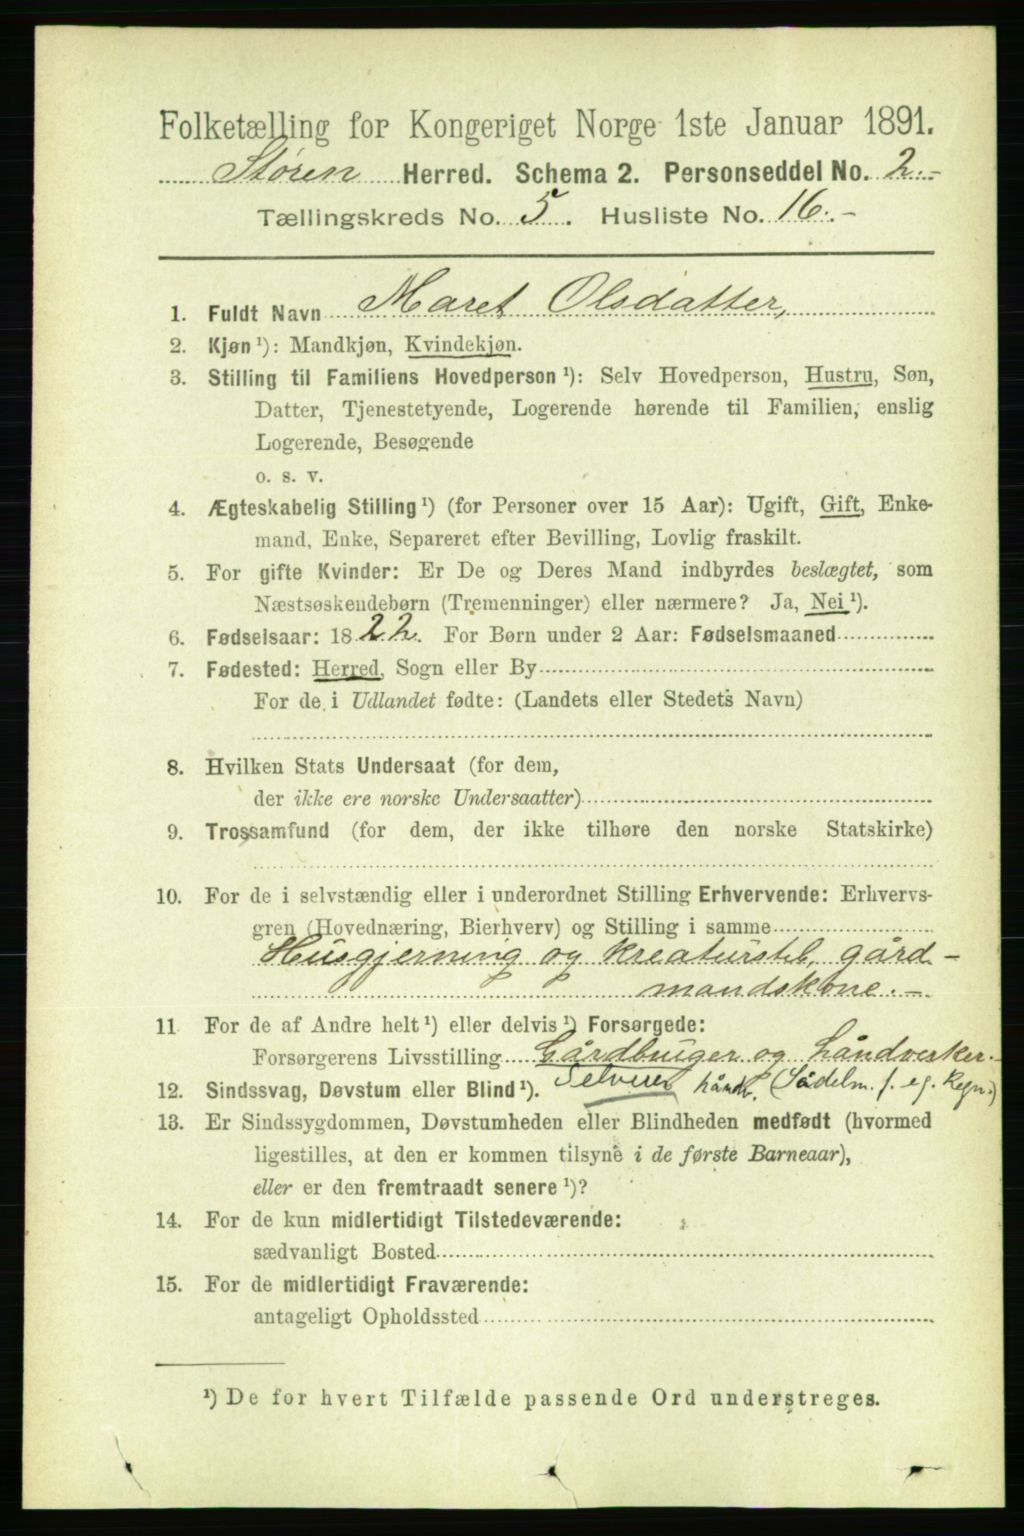 Folketælling for Kongeriget Norge 1ste Januar 1891.
Støren Herred. Schema 2. Personseddel No. 2.-
Tællingskreds No. 5. Husliste No. 16.-
1. Fuldt Navn Maret Olsdatter,
2. Kjøn ¹): Mandkjøn, Kvindekjøn.
3. Stilling til Familiens Hovedperson ¹): Selv Hovedperson, Hustru, Søn,
Datter, Tjenestetyende, Logerende hørende til Familien, enslig
Logerende, Besøgende
o. s. v.
4. Ægteskabelig Stilling ¹) (for Personer over 15 Aar): Ugift, Gift, Enke-
mand, Enke, Separeret efter Bevilling, Lovlig fraskilt.
5. For gifte Kvinder: Er De og Deres Mand indbyrdes beslægtet, som
Næstsøskendebørn (Tremenninger) eller nærmere? Ja, Nei ¹).
6. Fødselsaar: 1822. For Børn under 2 Aar: Fødselsmaaned
7. Fødested: Herred, Sogn eller By
For de i Udlandet fødte: (Landets eller Stedets Navn)
8. Hvilken Stats Undersaat (for dem,
der ikke ere norske Undersaatter)
9. Trossamfund (for dem, der ikke tilhøre den norske Statskirke)
10. For de i selvstændig eller i underordnet Stilling Erhvervende: Erhvervs-
gren (Hovednæring, Bierhverv) og Stilling i samme
Husgjerning og kreaturstel, gård-
mandskone.-
11. For de af Andre helt ¹) eller delvis ¹) Forsørgede:
Forsørgerens Livsstilling Gårdbruger og håndverker.-
12. Sindssvag, Døvstum eller Blind ¹). Selveier håndv. (Sadelm. f. eg. Regn.)
13. Er Sindssygdommen, Døvstumheden eller Blindheden medfødt (hvormed
ligestilles, at den er kommen tilsyne i de første Barneaar),
eller er den fremtraadt senere ¹)?
14. For de kun midlertidigt Tilstedeværende:
sædvanligt Bosted
15. For de midlertidigt Fraværende:
antageligt Opholdssted
¹) De for hvert Tilfælde passende Ord understreges.